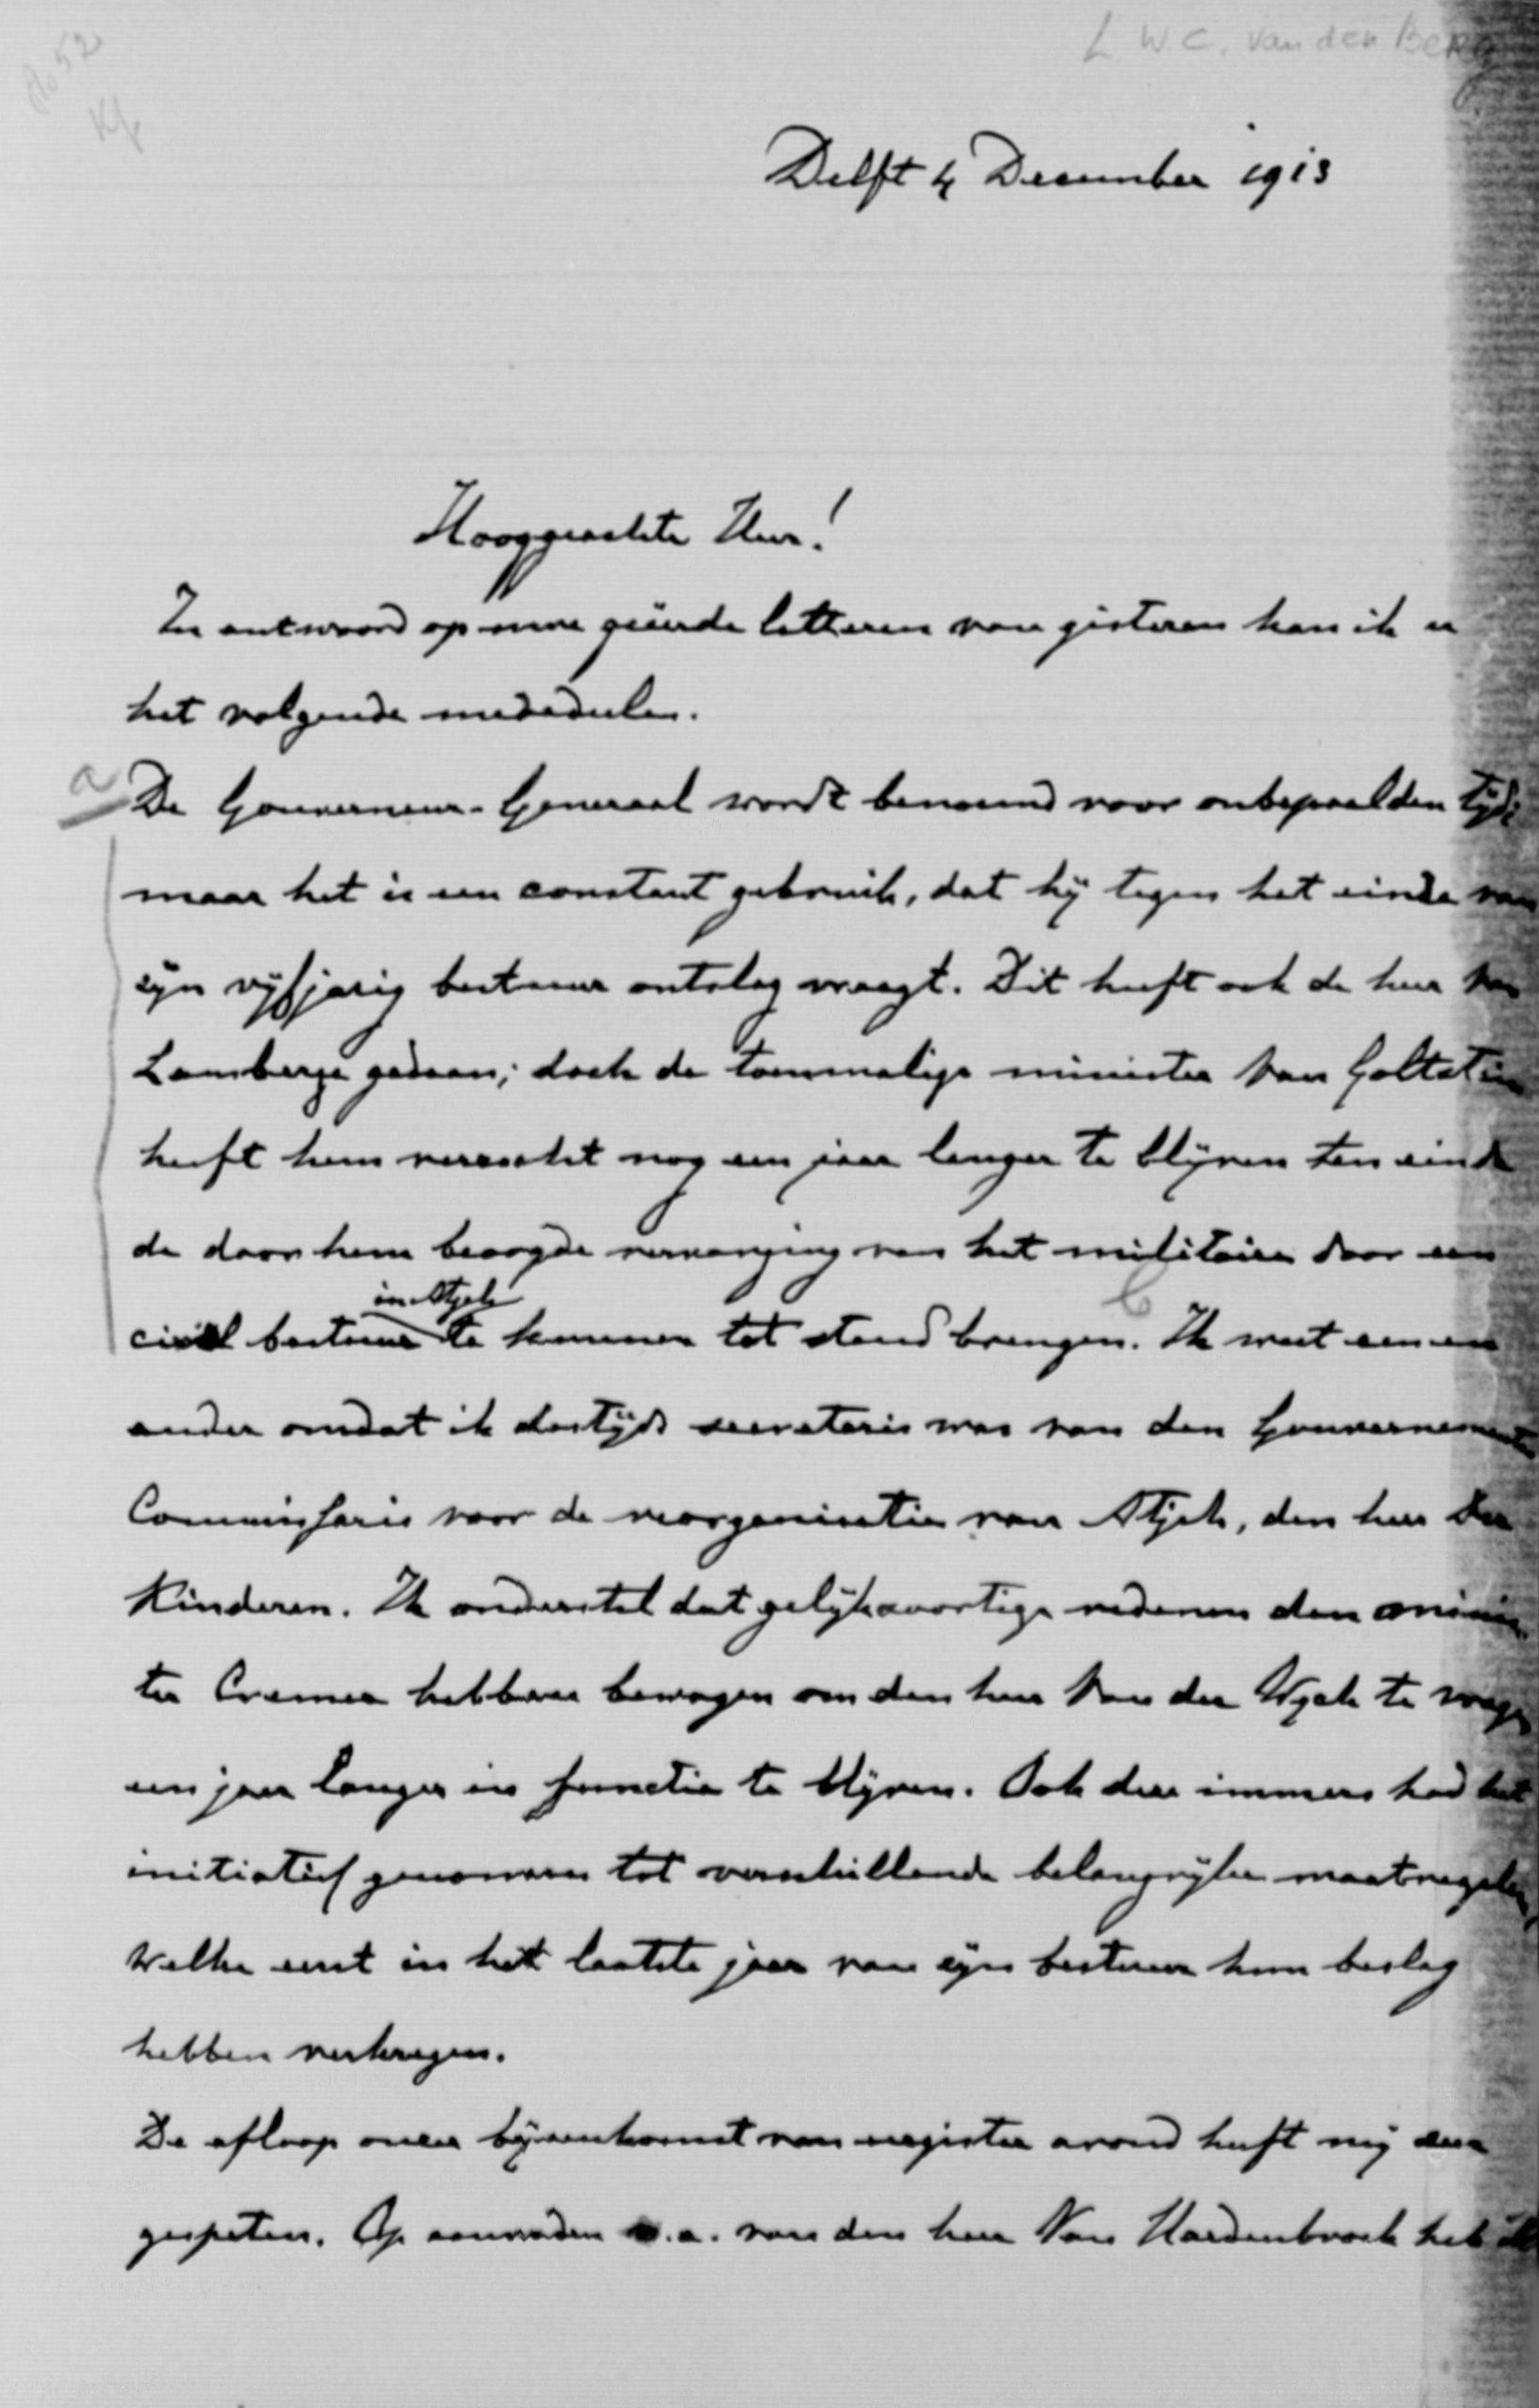 L W. C. van den Berg
No 52
Delft 4 December 1913
Hooggeachte Heer!
In antwoord op uwe geëerde letteren van gisteren kan ik u
het volgende mededeelen.
a De Gouverneur-Generaal wordt benoemd voor onbepaalden tijd;
maar het is een constant gebruik, dat hij tegen het einde van
zijn vijfjarig bestuur ontslag vraagt. Dit heeft ook de heer Van
Lansberge gedaan; doch de toenmalige minister Van Goltstein
heeft hem verzocht nog een jaar langer te blijven ten einde
de door hem beoogde vervanging van het militaire door een
in Atjeh
civiel bestuur te kunnen tot stand brengen. Ik weet een en
ander omdat ik destijds secretaris was van den Gouvernements
Commissaris voor de reorganisatie van Atjeh, den heer Der
Kinderen. Ik onderstel dat gelijksoortige redenen den minis
ter Cremer hebben bewogen om den heer Van der Wyck te vragen
een jaar langer in functie te blijven. Ook deze immers had het
initiatief genomen tot verschillende belangrijke maatregelen,
welke eerst in het laatste jaar van zijn bestuur hun beslag
hebben verkregen.
De afloop onzer bijeenkomst van eergister avond heeft mij zeer
gespeten. Op aanraden o.a. van den heer Van Hardenbroek heb ik